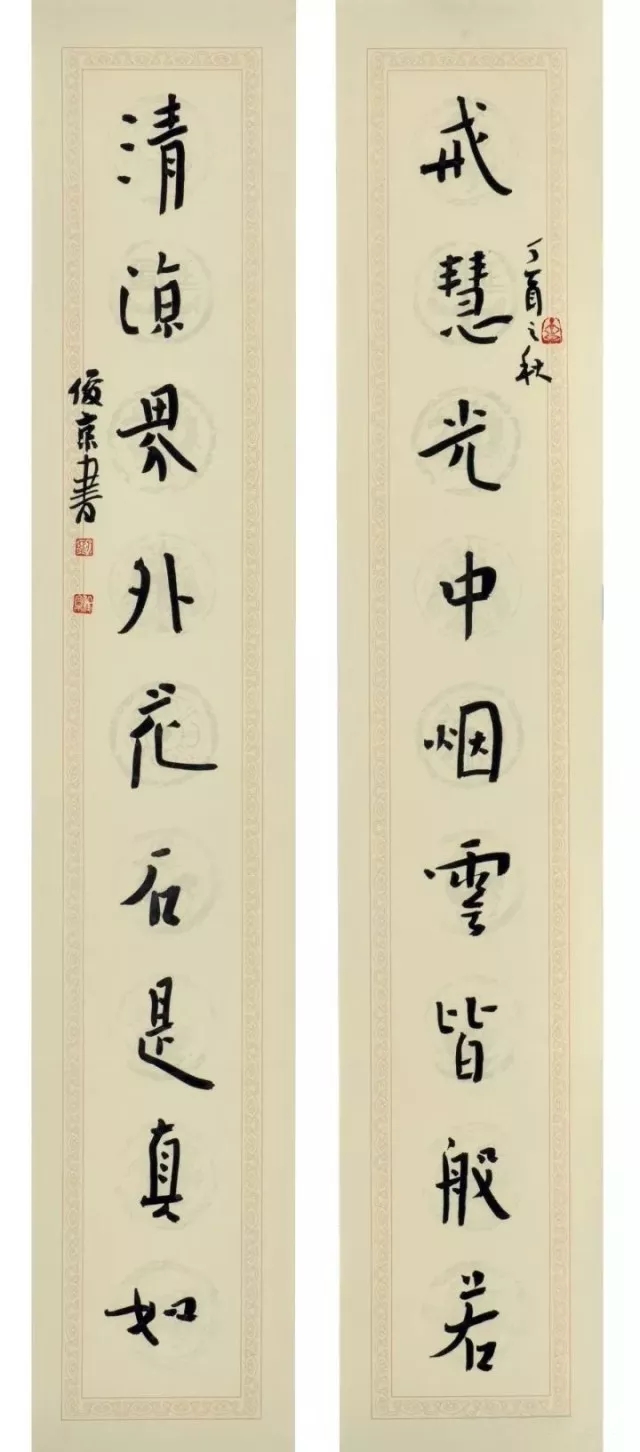 戒慧光中烟雲皆般若
丁酉之秋
清凉界外花石是真如
俊京书